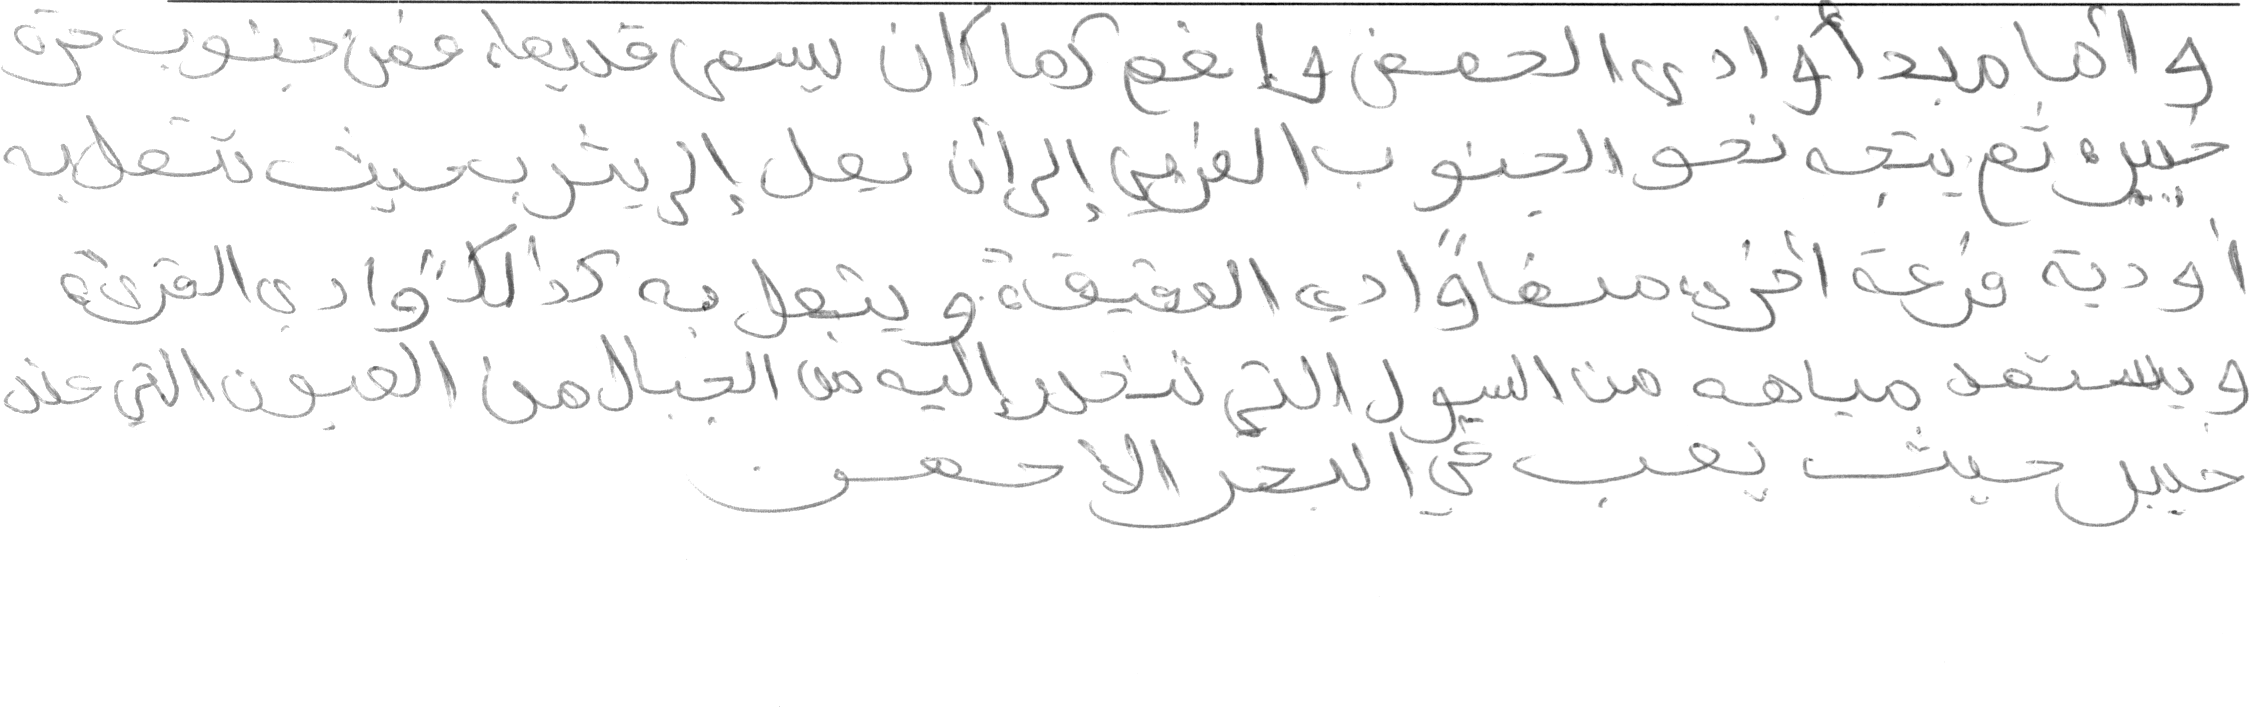 وأما مبدأ وادي الحمض وإضم كما كان يسمى قديما، فمن جنوب حرة
خيبر، ثم يتجه نحو الجنوب الغربي إلى أن يصل إلى يثرب حيث تتصل به
أودية فرعية أخرى، منها وادي العقيق، ويتصل به كذلك وادي القرى،
ويستمد مياهه من السيول التي تنحدر إليه من الجبال من العيون التي عند
خيبر حيث يصب في البحر الأحمر